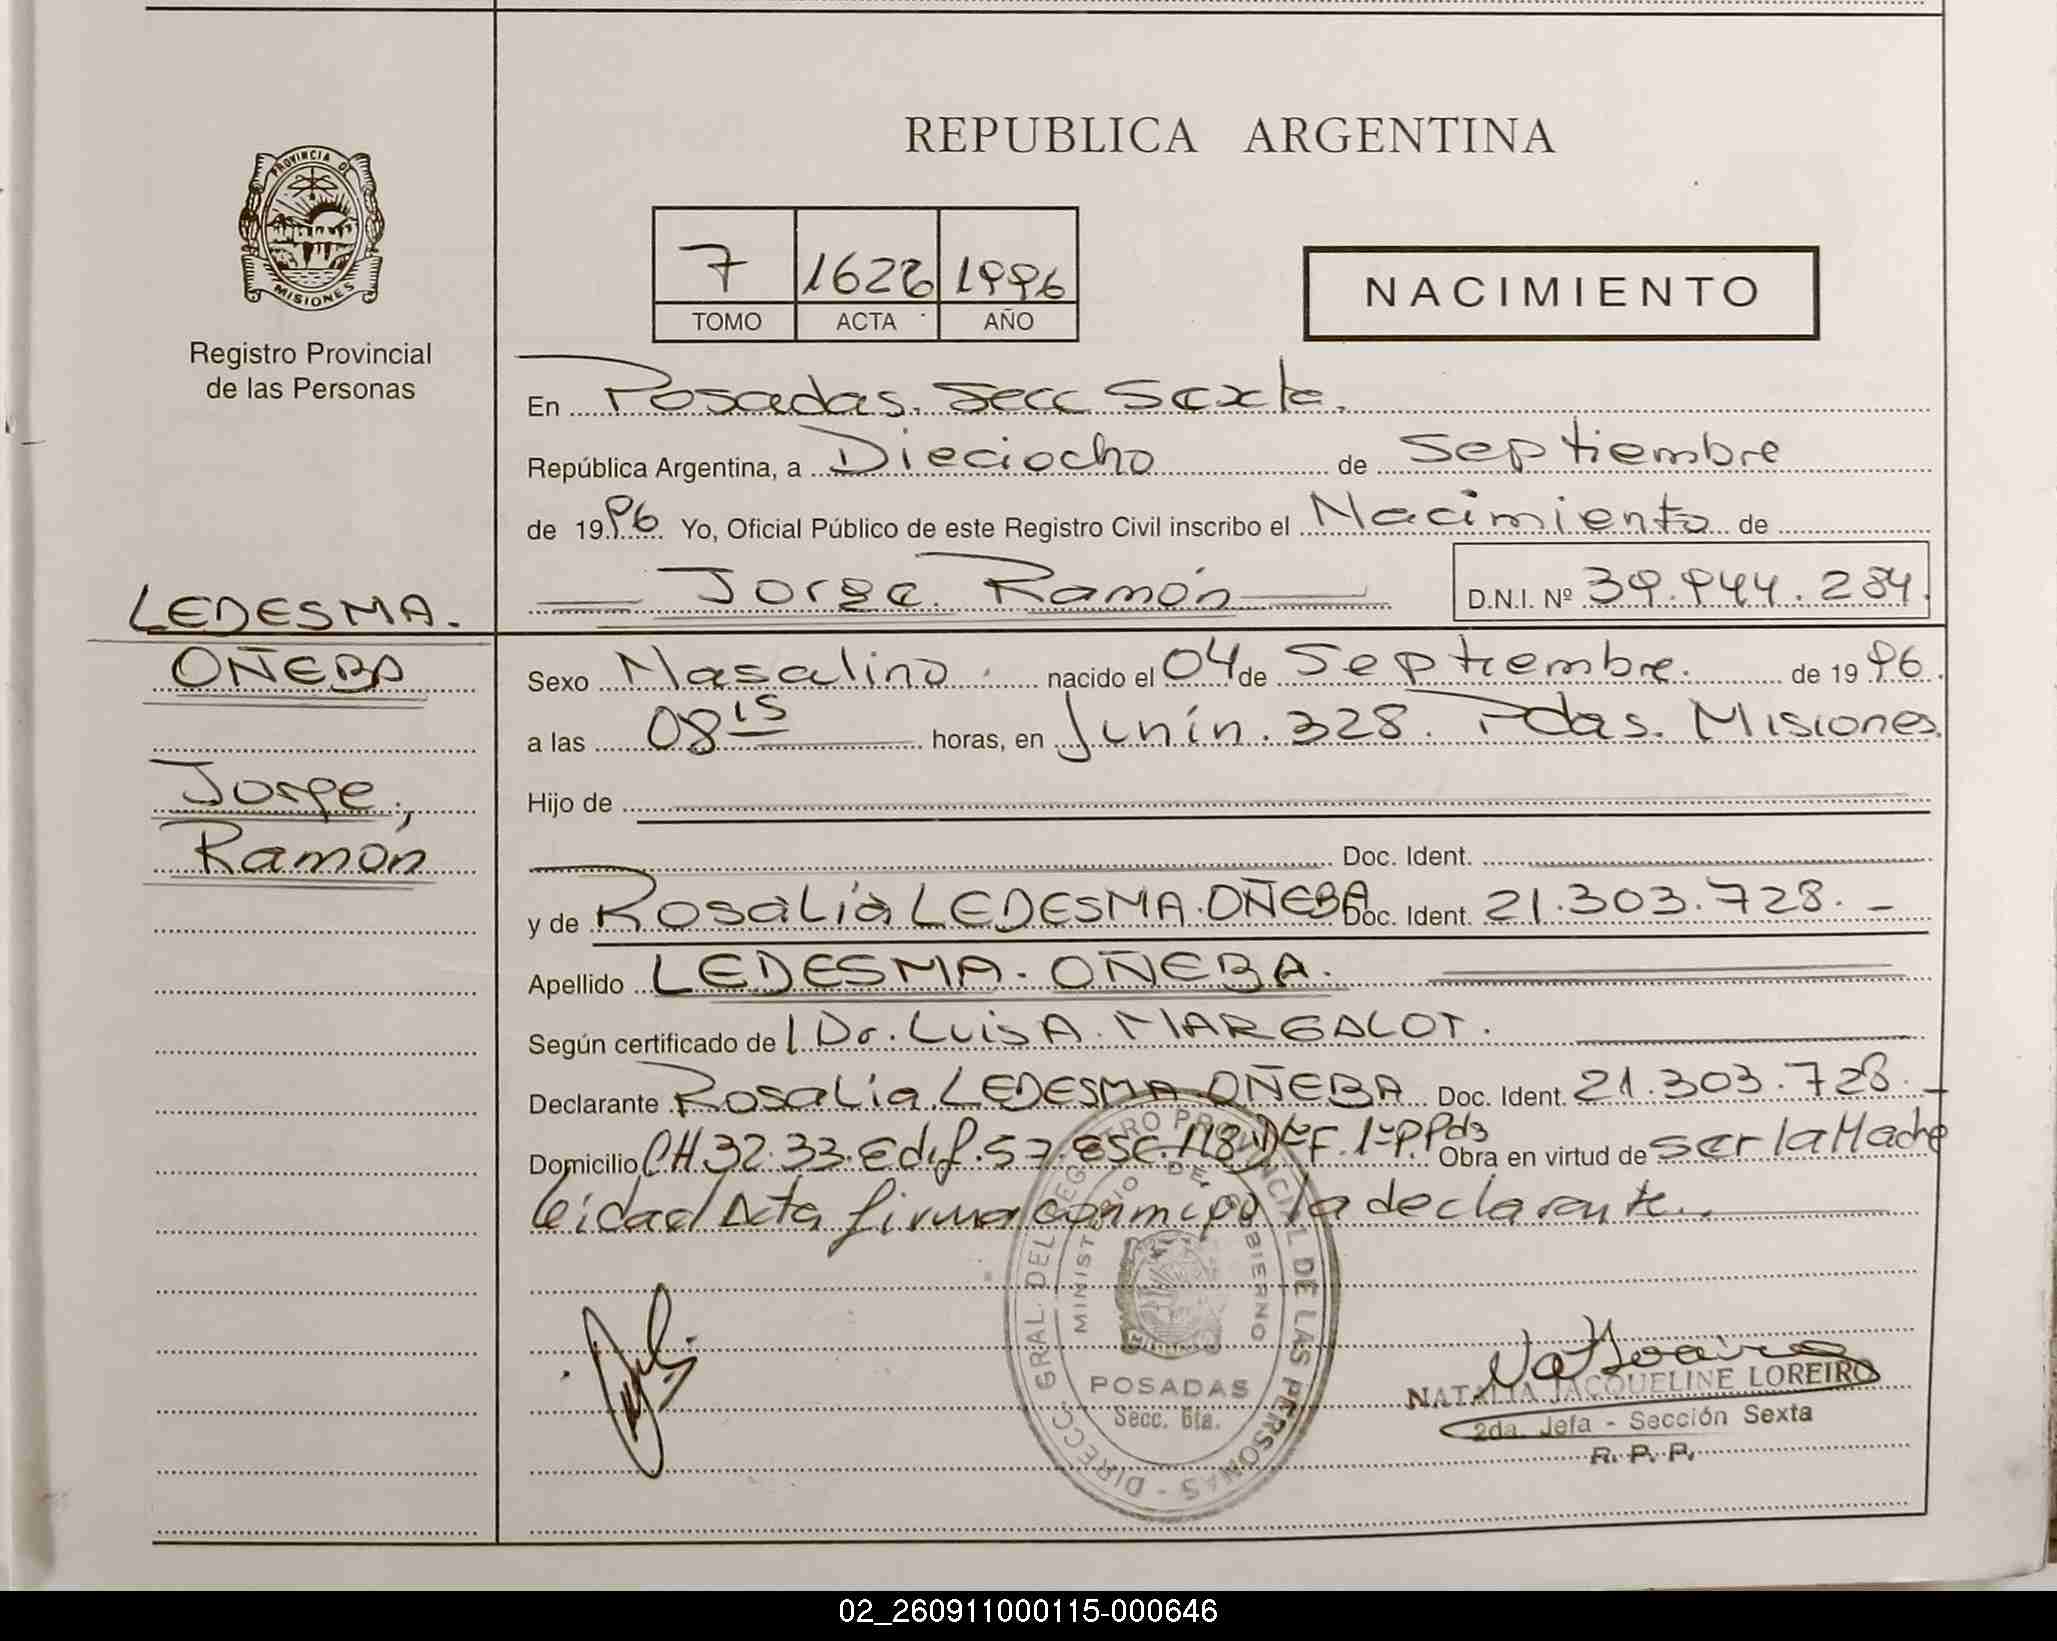 PROVINCIA DE
MISIONES
Registro Provincial
de las Personas
REPUBLICA ARGENTINA
7 1626 1996
TOMO ACTA AÑO
NACIMIENTO
En Posadas. Secc Sexta.
República Argentina, a Dieciocho de Septiembre
de 1996 Yo, Oficial Público de este Registro Civil inscribo el Nacimiento de
Jorge Ramón D.N.I. Nº 39.944.284.
LEDESMA.
OÑEBA
Jorge,
Ramón
Sexo Masculino. nacido el 04 de Septiembre. de 1996.
a las 08 15 horas, en Junín. 328. Pdas. Misiones.
Hijo de
Doc. Ident.
y de Rosalia LEDESMA. OÑEBA Doc. Ident. 21.303.728. -
Apellido LEDESMA. OÑEBA.
Según certificado de l Dr. Luis A. MARGALOT.
Declarante Rosalia. LEDESMA. OÑEBA Doc. Ident. 21.303.728. -
Domicilio CH. 32.33. Edif. 57 esc. 118 Dto F. 1º P. Pdas Obra en virtud de ser la Madre
leida el Acta firma conmigo la declarante..
DIRECC. GRAL. DEL REGISTRO PROVINCIAL DE LAS PERSONAS -
MINISTERIO DE GOBIERNO
POSADAS
Secc. 6ta.
NATALIA JACQUELINE LOREIRO
2da. Jefa - Sección Sexta
R. P. P.
02_260911000115-000646